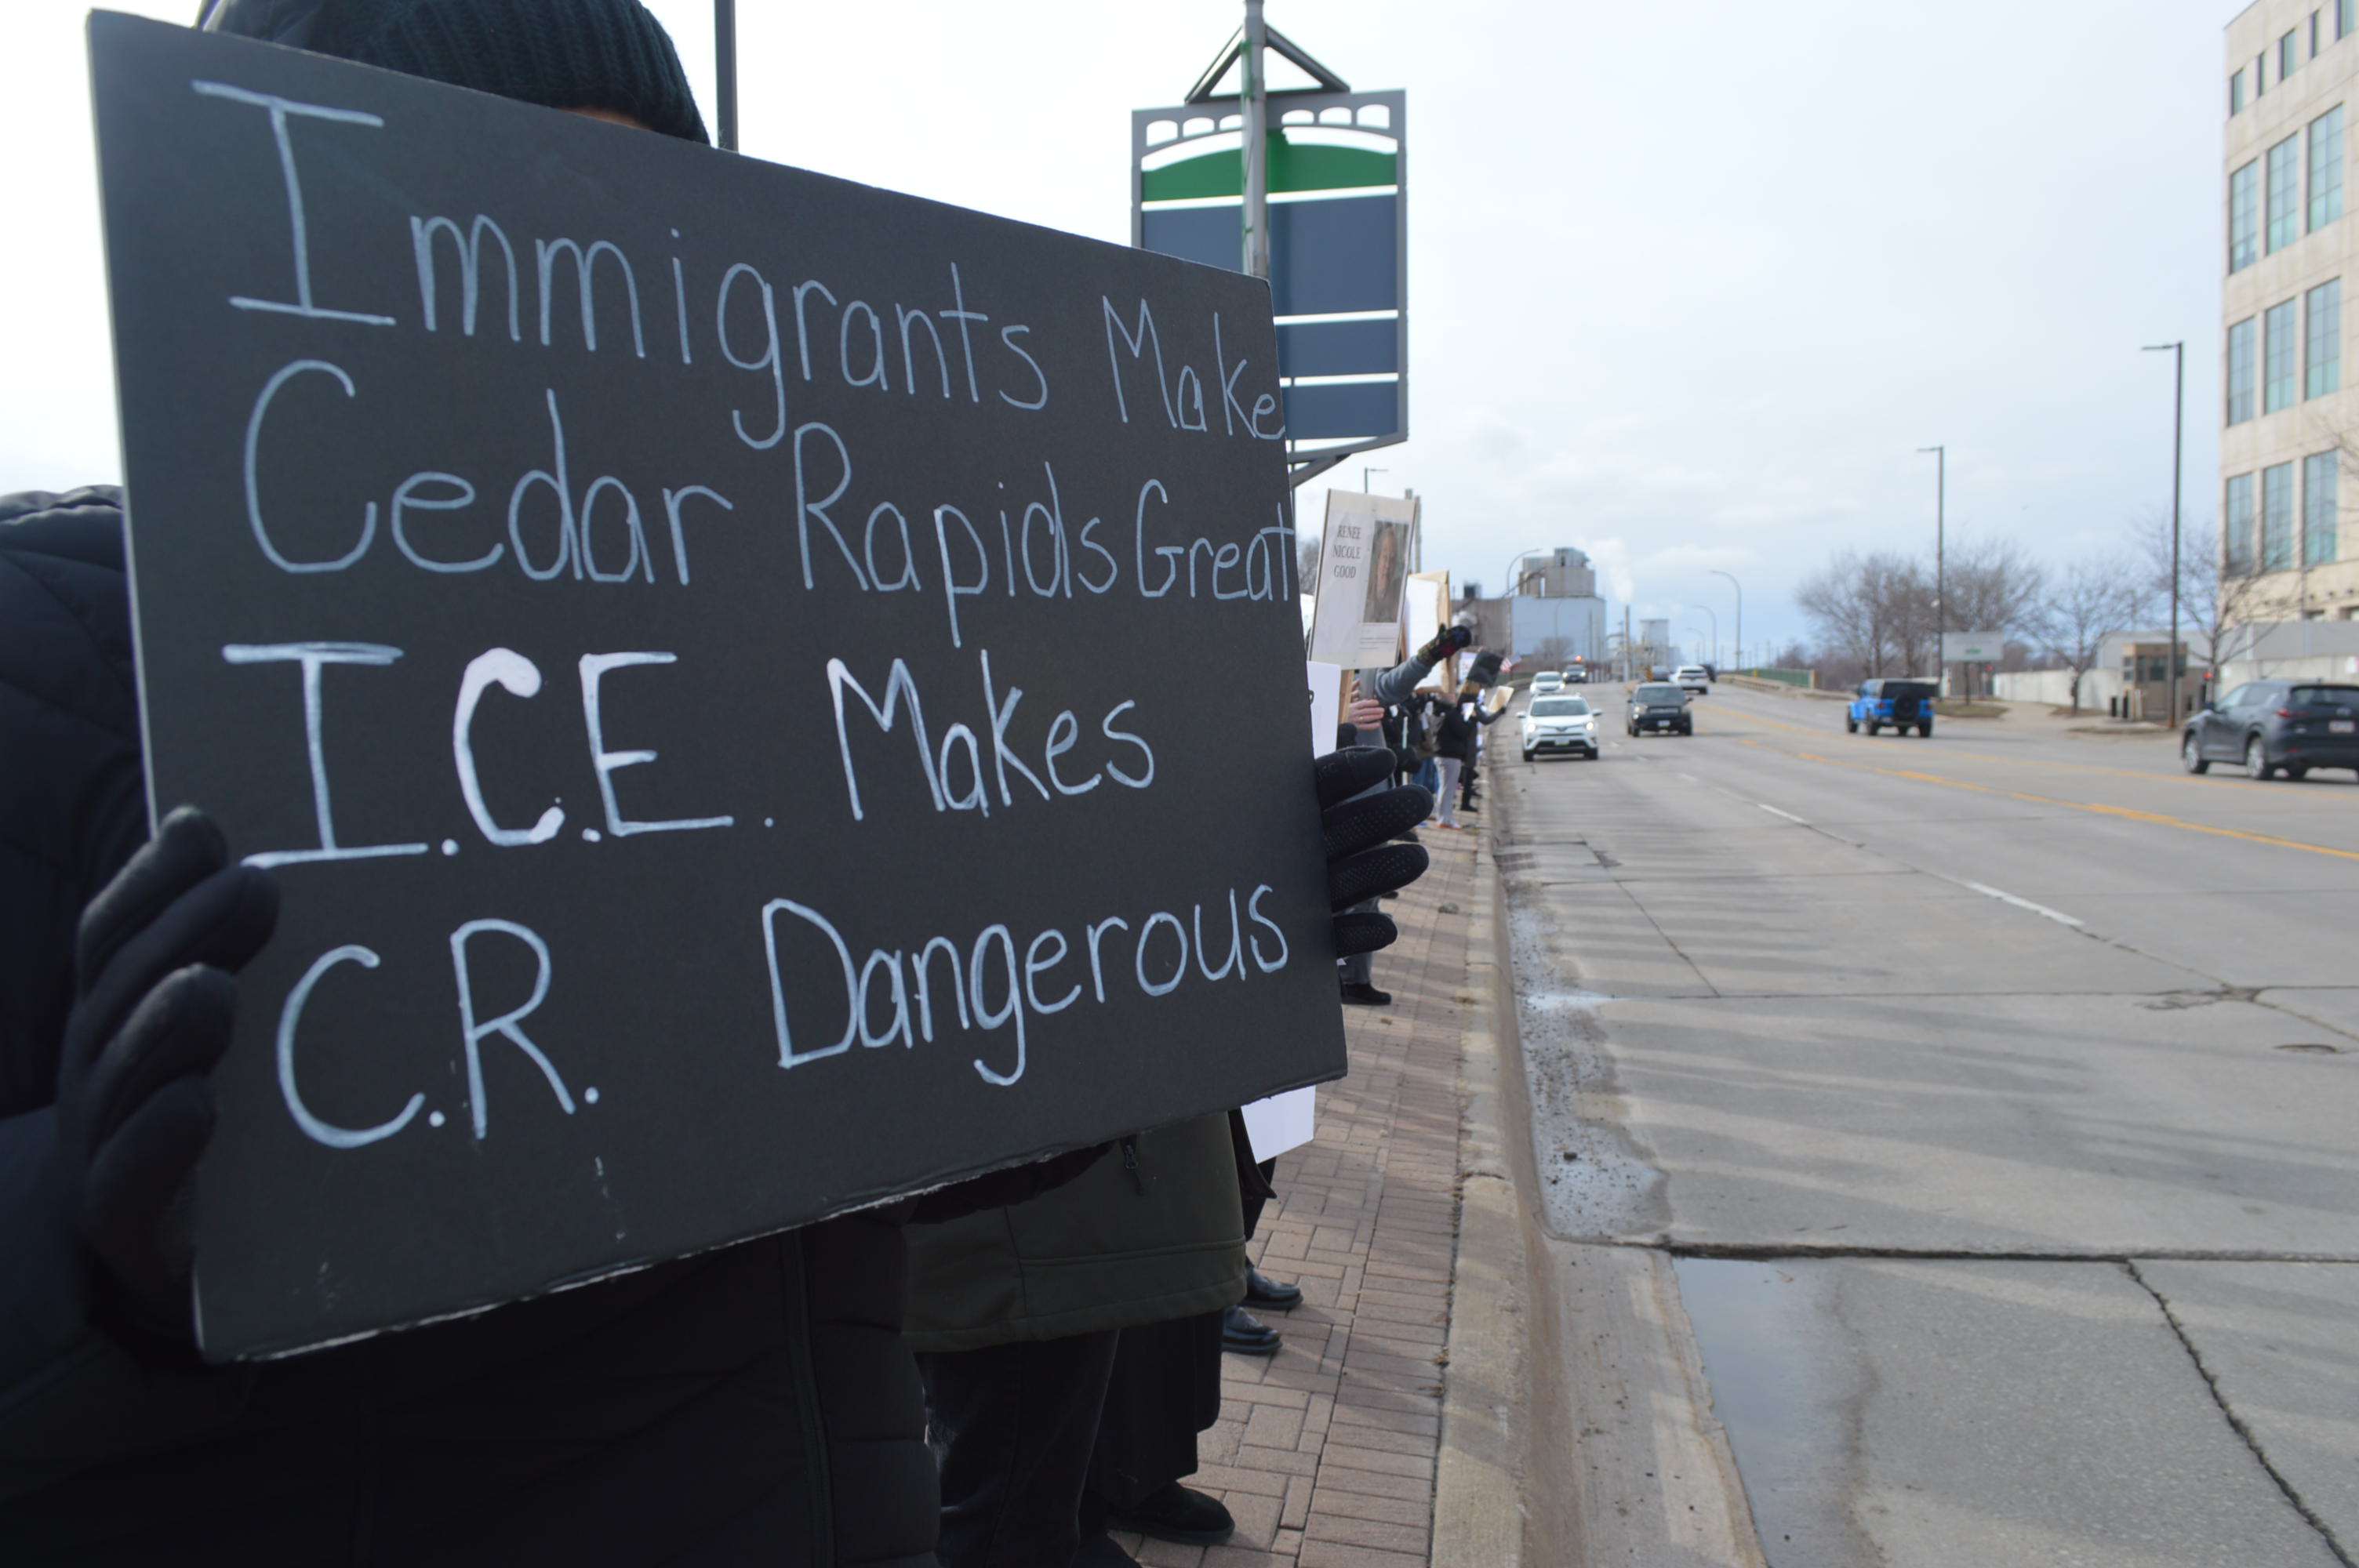 Immigrants Make
Cedar Rapids Great
I.C.E. Makes
C.R. Dangerous
RENEE
NICOLE
GOOD